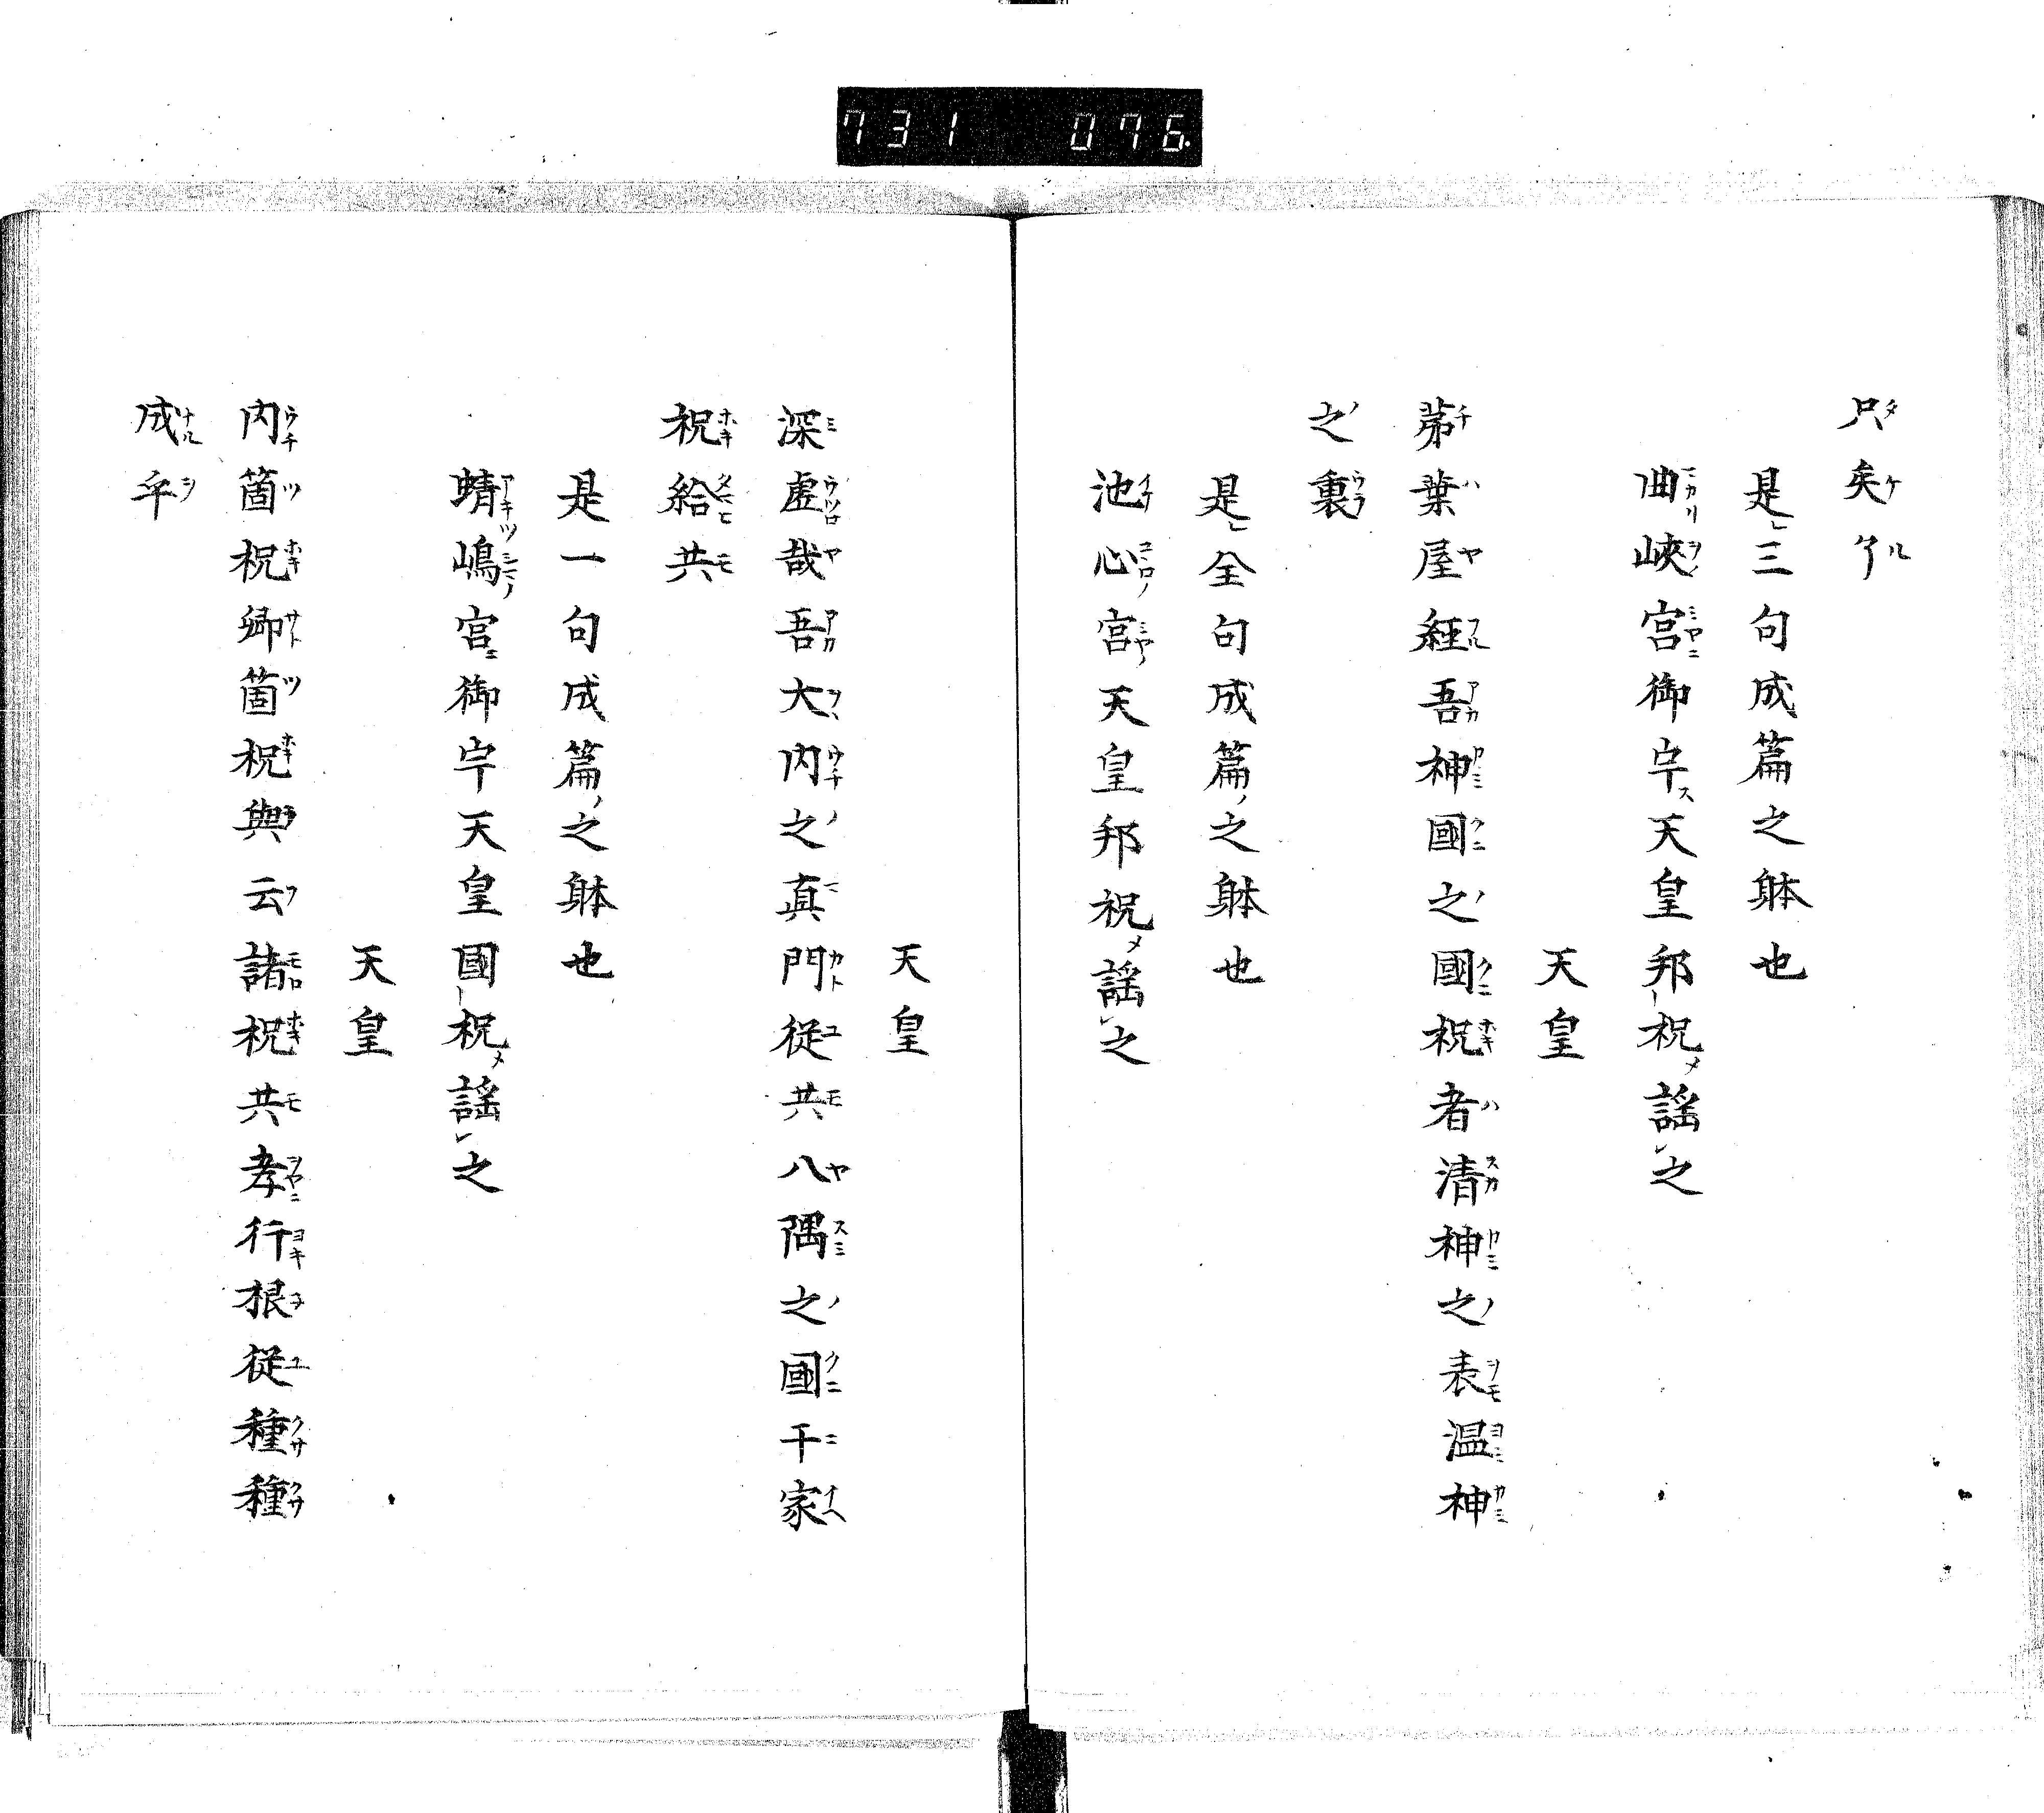 731 076
只矣了
是三句成篇之躰也
曲峽宮御宇天皇邦祝謡之
天皇
茅葉屋経吾神國之國祝者清神之表温神
之裏
是全句成篇之躰也
池心宮天皇邦祝謡之
天皇
深虚哉吾大内之真門従共八隅之國千家
祝給共
是一句成篇之躰也
蜻嶋宮御宇天皇國祝謡之
天皇
内箇祝郷箇祝與云諸祝共孝行根従種種
成乎